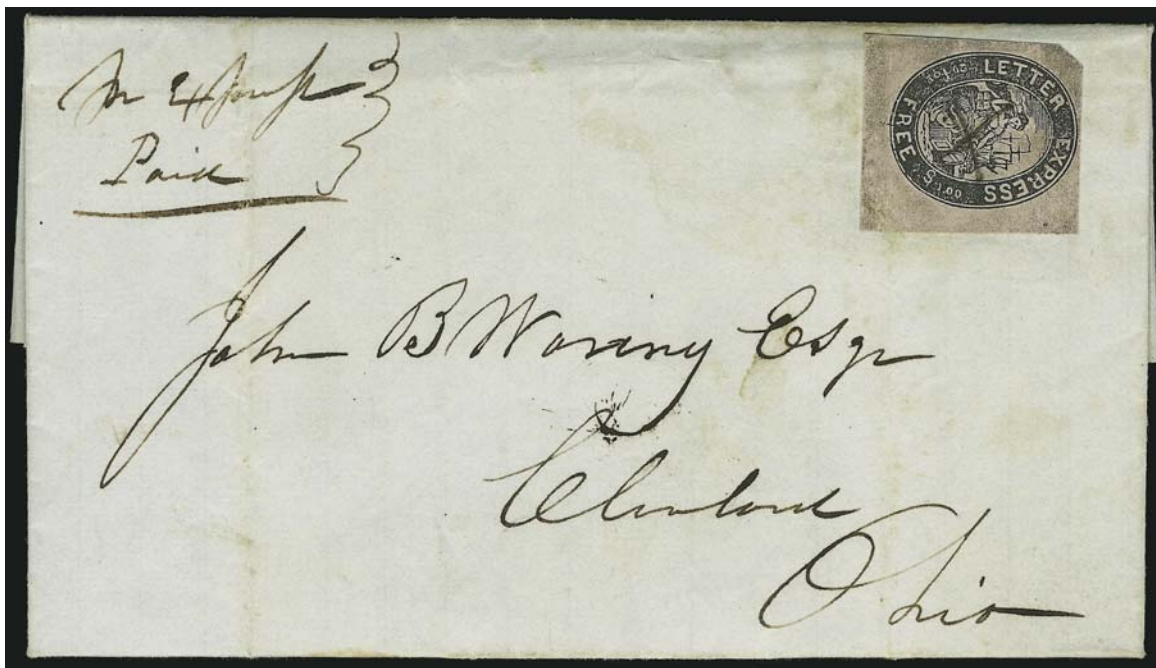 Paid
LETTER EXPRESS
FREE
20 for $1.00
John B Waring Esqr
Cleveland
Ohio